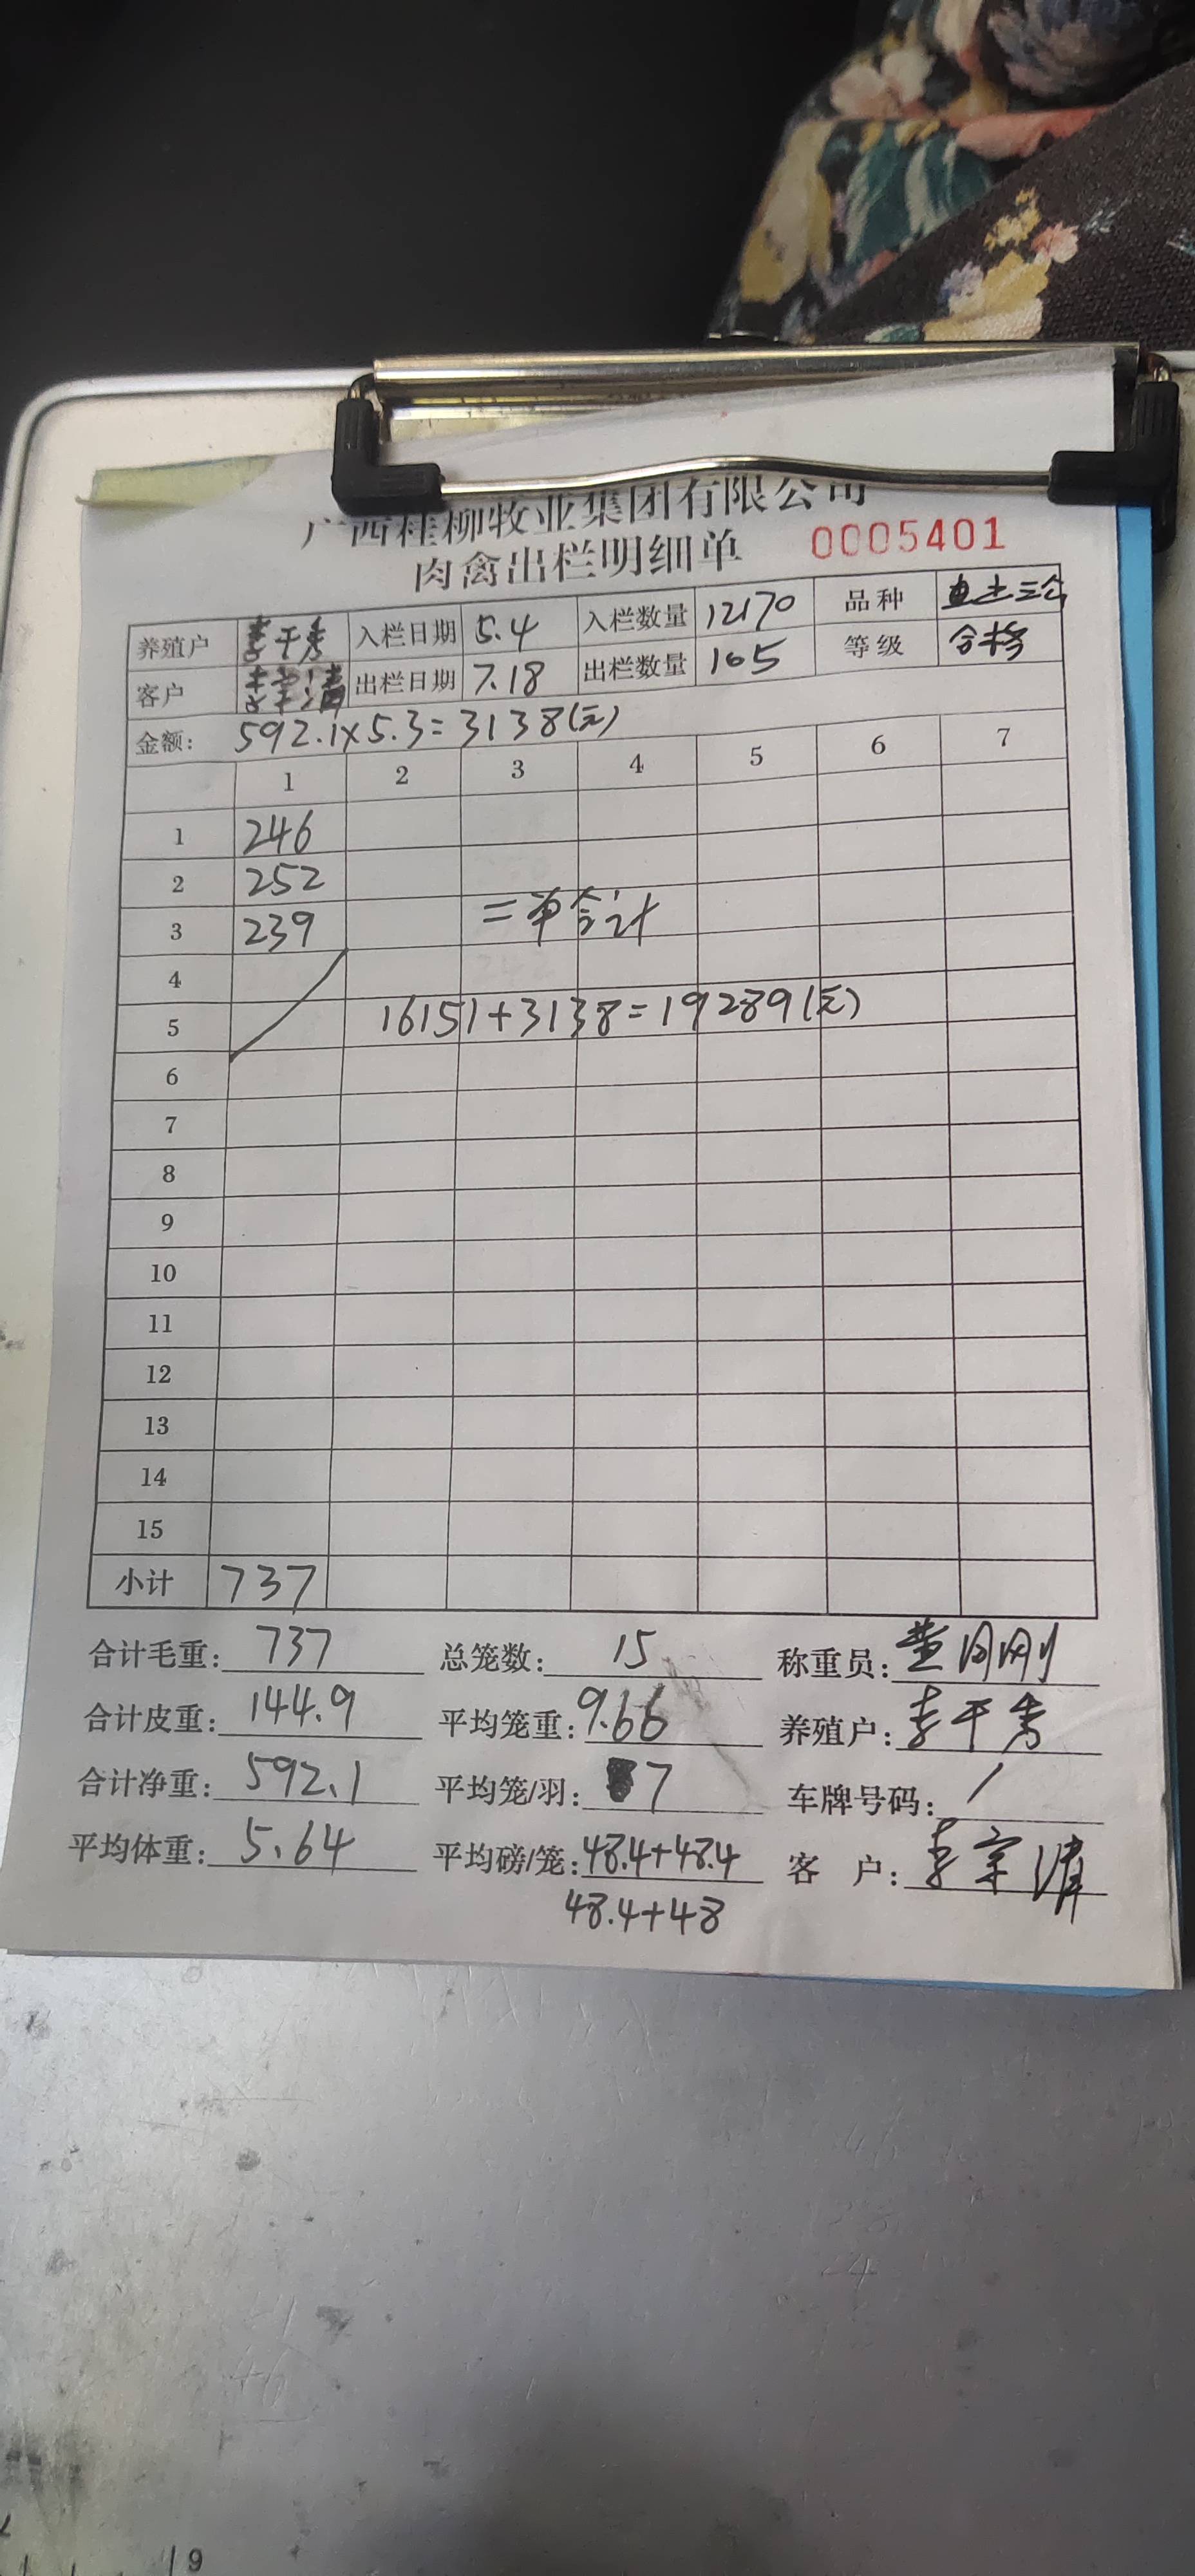 广西桂柳牧业集团有限公司
肉禽出栏明细单 0005401
养殖户 李干秀 入栏日期 5.4 入栏数量 12170 品种
客户 出栏日期 7.18 出栏数量 105 等级 合格
金额: 592.1×5.3=3138(元)
1 2 3 4 5 6 7
1 246
2 252
3 239 二单合计
4
5 16151+3138=19289(元)
6
7
8
9
10
11
12
13
14
15
小计 737
合计毛重: 737 总笼数: 15 称重员:
合计皮重: 144.9 平均笼重: 9.66 养殖户: 李干秀
合计净重: 592.1 平均笼/羽: 7 车牌号码: /
平均体重: 5.64 平均磅/笼: 48.4+48.4 客 户: 李宗清
48.4+48
19